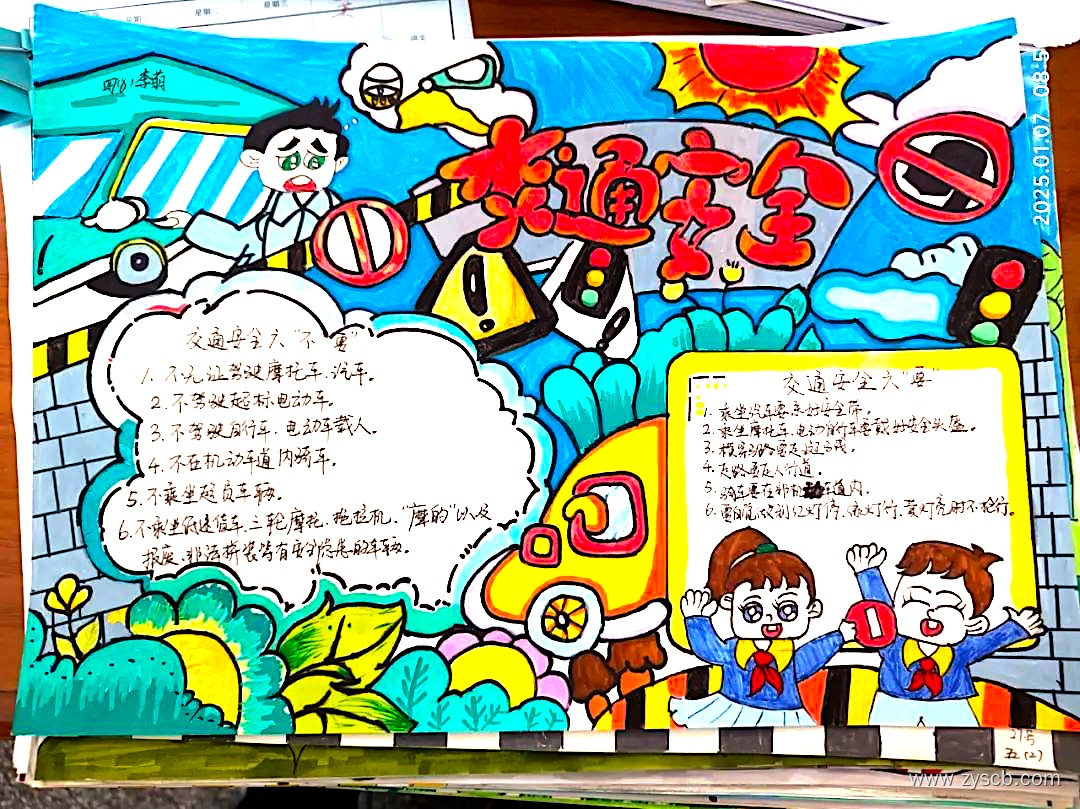 四(8)李萌
交通安全
2025.01.07 08:5
交通安全六"不要"
1、不无证驾驶摩托车、汽车。
2、不驾驶超标电动车。
3、不驾驶自行车、电动车载人。
4、不在机动车道内骑车。
5、不乘坐超员车辆。
6、不乘坐低速货车、三轮摩托、拖拉机、"摩的"以及
报废、非法拼装等有安全隐患的车辆。
交通安全六"要"
1、乘坐汽车要系好安全带。
2、乘坐摩托车、电动自行车要戴好安全头盔。
3、横穿马路要走斑马线。
4、走路要走人行道。
5、骑车要在非机动车道内。
6、要做到红灯停、绿灯行、黄灯亮时不抢行。
21号
五(2)
www.zyscb.com